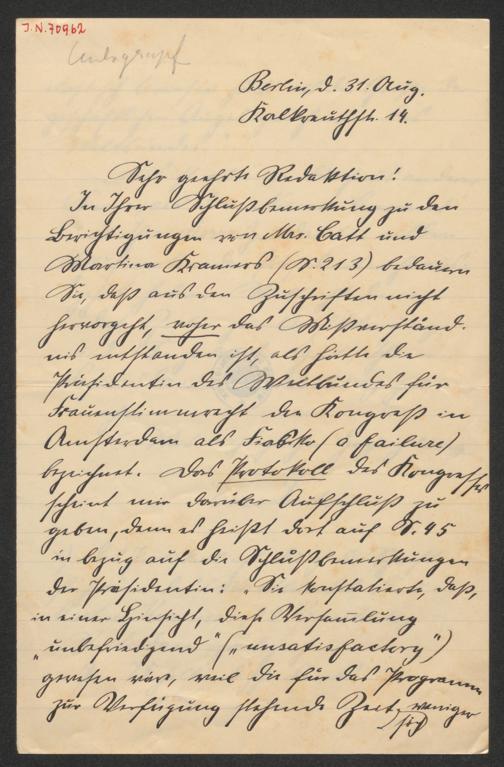 J.N. 70962
Autograph
Berlin, d. 31. Aug.
Kalkreuthstr. 14.
Sehr geehrte Redaktion!
In Ihrer Schlußbemerkung zu den
Berichtigungen von Mrs. Catt und
Martina Kramers (S. 213) bedauern
Sie, daß aus den Zuschriften nicht
hervorgeht, woher das Mißverständ-
nis entstanden ist, als hätte die
Präsidentin des Weltbundes für
Frauenstimmrecht den Kongreß in
Amsterdam als Fiasko (a failure)
bezeichnet. Das Protokoll des Kongresses
scheint mir darüber Aufschluß zu
geben, denn es heißt dort auf S. 45
in bezug auf die Schlußbemerkungen
der Präsidentin: „Sie konstatierte, daß,
in einer Hinsicht, diese Versammlung
„unbefriedigend" („unsatisfactory")
gewesen wäre, weil die für das Programm
zur Verfügung stehende Zeit, weniger